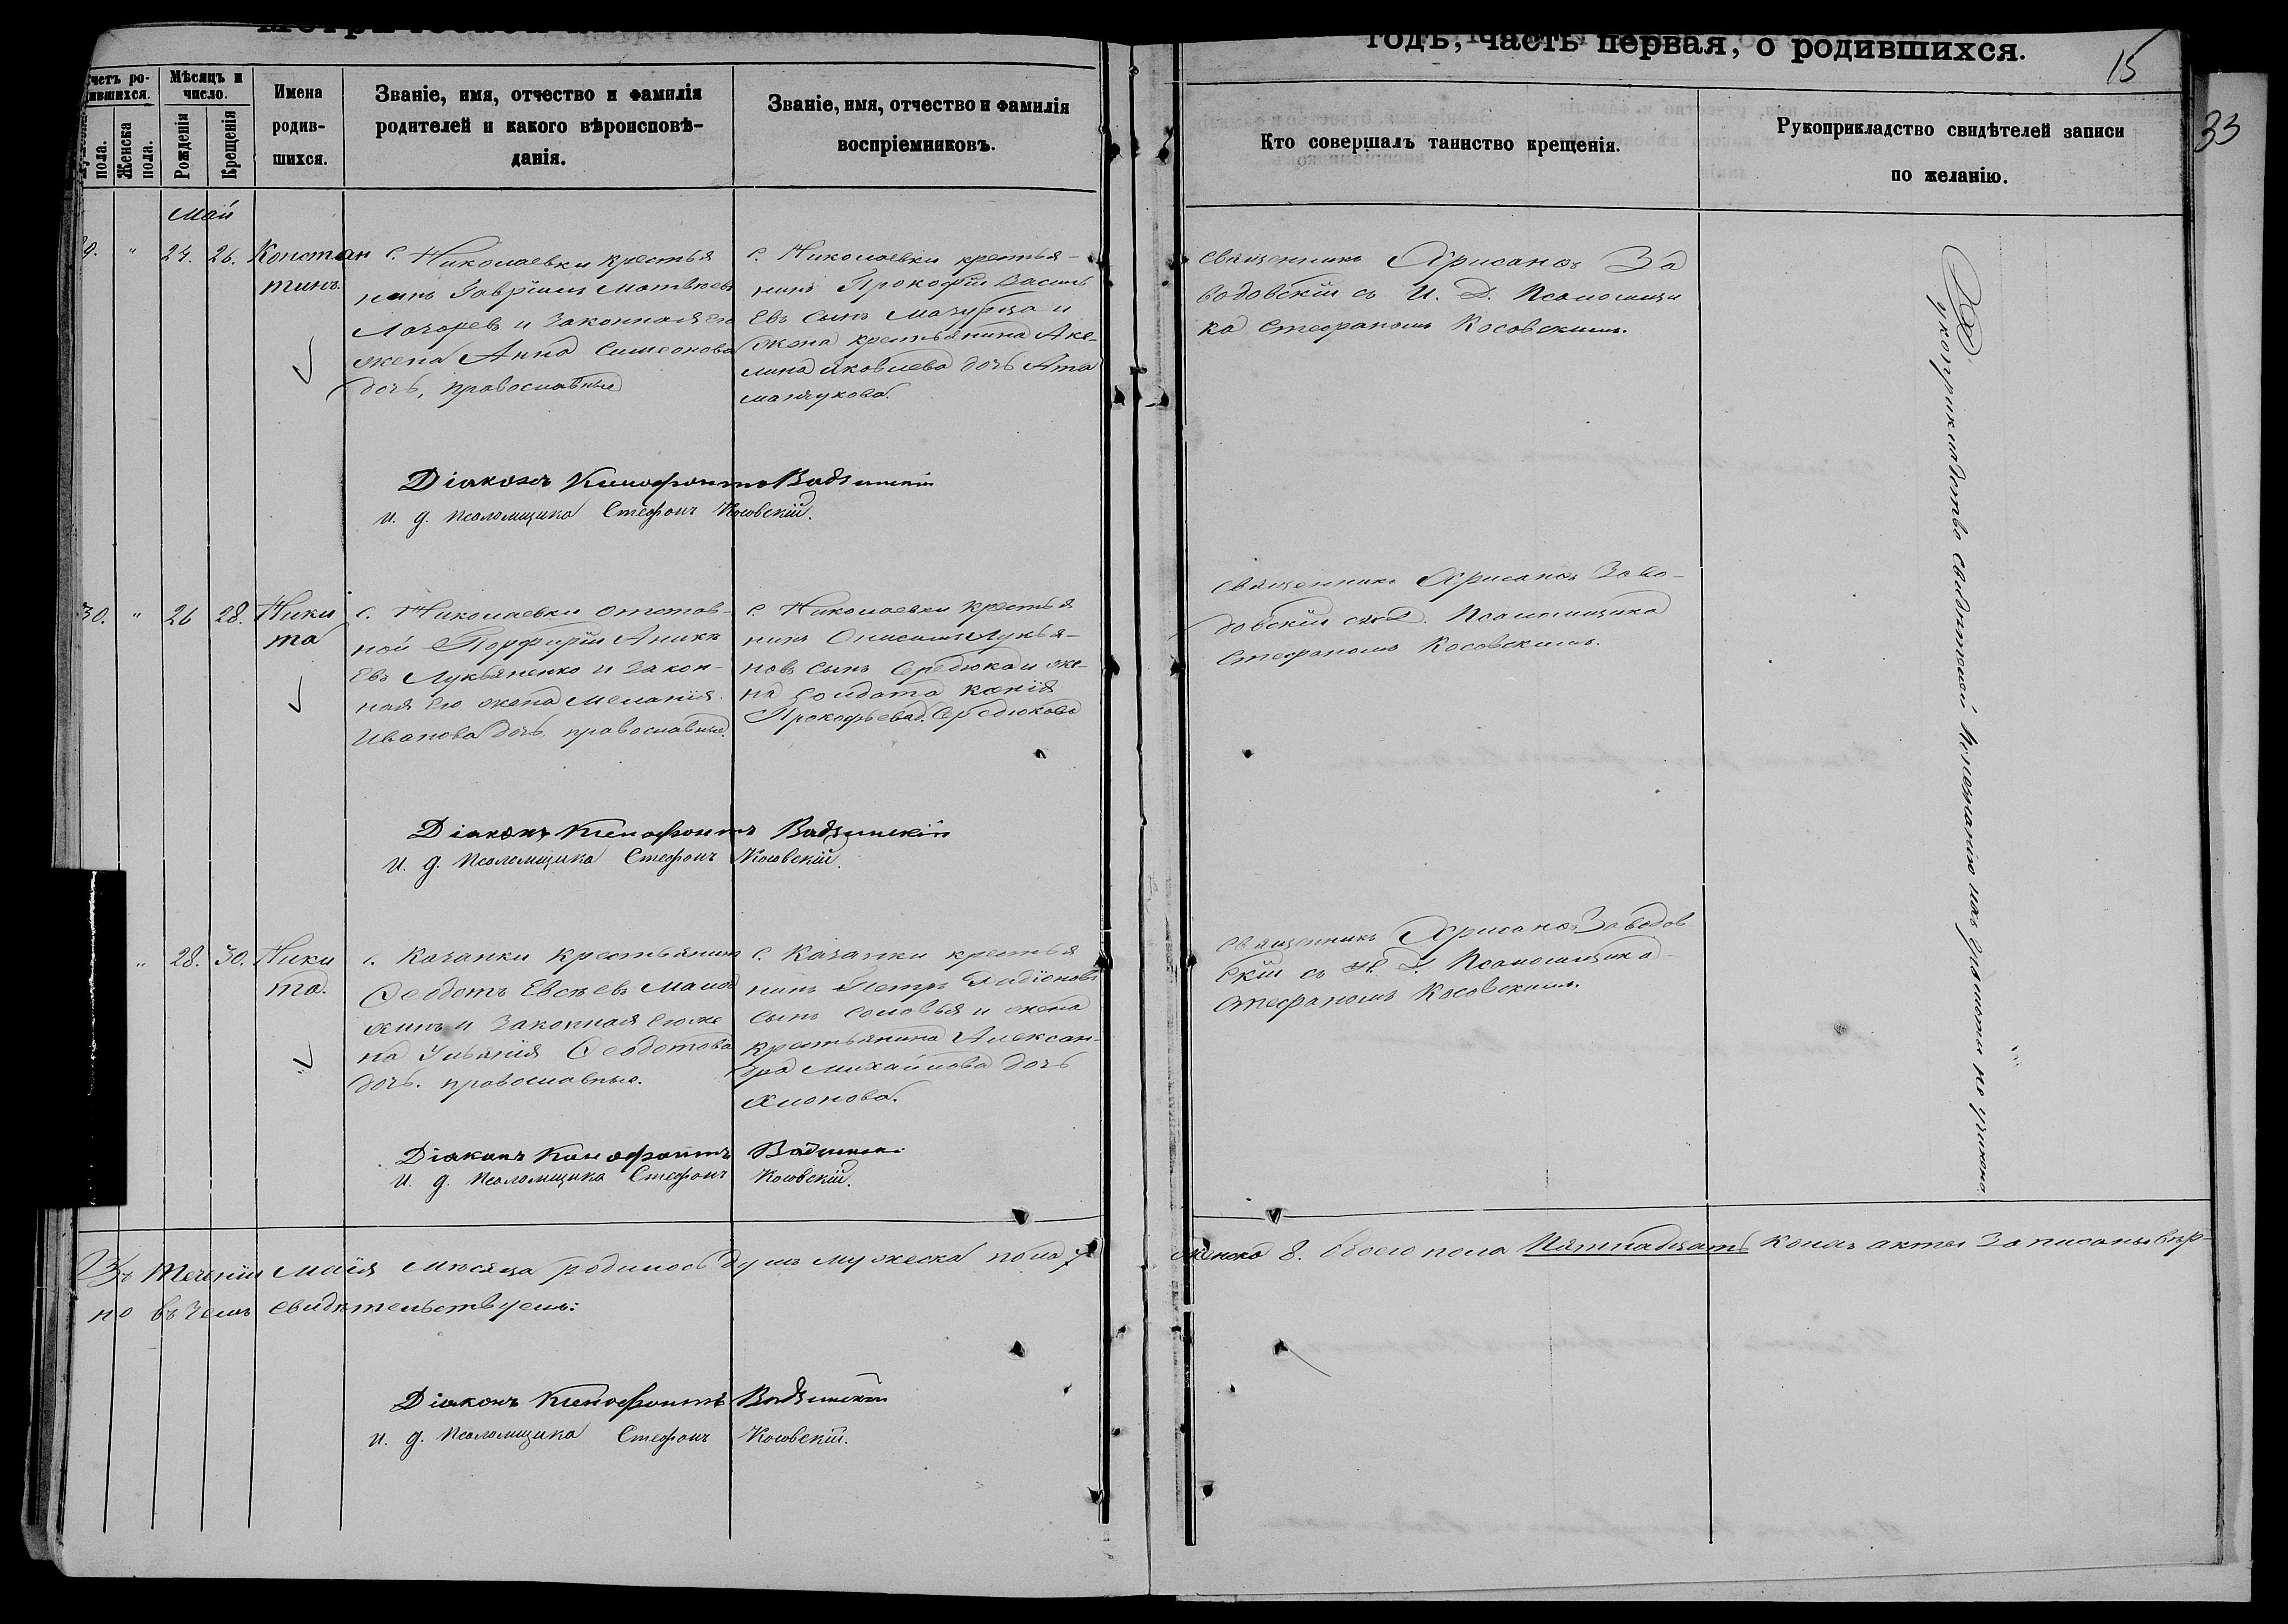 годъ, часть первая, о родившихся.
15
33
Счетъ ро-
дившихся.
Мѣсяцъ и
число.
пола.
Женска
пола.
Рожденія
Крещенія
Имена
родив-
шихся.
Званіе, имя, отчество и фамилія
родителей и какого вѣроисповѣ-
данія.
Званіе, имя, отчество и фамилія
воспріемниковъ.
Кто совершалъ таинство крещенія.
Рукоприкладство свидѣтелей записи
по желанію.
Май
9. " 24. 26.
Констан
тинъ.
с. Николаевки крестья
нинъ Гавріилъ Матвѣевъ
Лазоревъ и законная его
жена Анна Симеонова
дочь, православные
с. Николаевки крестья-
нинъ Прокофій Василь
евъ сынъ Мазурца и
жена крестьянина Аки-
лина Яковлева дочь Ата
манчукова.
Священникъ Хрисанөъ За
водовскій съ И. Д. Псаломщи
ка Стефаномъ Косовскимъ.
Діаконъ Ксенофонтъ
И. д. Псаломщика Стефанъ Косовскій.
30. " 26 28.
Ники
та
с. Николаевки отстав-
ной Порфирій Аникі
евъ Лукьяненко и закон-
ная его жена Меланія
Иванова дочь, православные.
с. Николаевки крестья
нинъ Онисимъ Лукья-
новъ сынъ Середюка и же-
на солдата Ксенія
Прокофьева д. Середюкова
Священникъ Хрисанөъ Заво-
довскій съ И. Д. Псаломщика
Стефаномъ Косовскимъ.
Діаконъ Ксенофонтъ
И. д. Псаломщика Стефанъ Косовскій.
" 28. 30.
Ники
та.
с. Казанки крестьянинъ
Өеодотъ Евсѣевъ
и законная его же
на Ульянія Өеодотова
дочь. православные.
с. Казанки крестья
нинъ Петръ Родіоновъ
сынъ Соловья и жена
крестьянина Алексан-
дра Михайлова дочь
Священникъ Хрисанөъ Заводов
скій съ И. Д. Псаломщика
Стефаномъ Косовскимъ.
Діаконъ Ксенофонтъ
И. д. Псаломщика Стефанъ Косовскій.
Рукоприкладство свидѣтелей по желанію ихъ
Въ теченіи Маія мѣсяца родилось душъ мужеска пола 7 женска 8. обоего пола Пятнадцать коихъ акты записаны вѣр-
но въ чемъ свидѣтельствуемъ:
Діаконъ Ксенофонтъ
И. д. Псаломщика Стефанъ Косовскій.